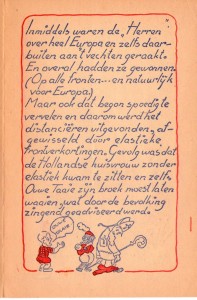 Inmiddels waren de „Herren"
over heel Europa en zelfs daar-
buiten aan 't vechten geraakt.
En overal hadden ze gewonnen.
(Op alle fronten... en natuurlijk
voor Europa.)
Maar ook dat begon spoedig te
vervelen en daarom werd het
distanciëren uitgevonden, af-
gewisseld door elastieke
frontverkortingen. Gevolg was dat
de Hollandse huisvrouw zonder
elastiek kwam te zitten en zelfs
Ouwe Taaie zijn broek moest laten
waaien, wat door de bevolking
zingend geadviseerd werd.